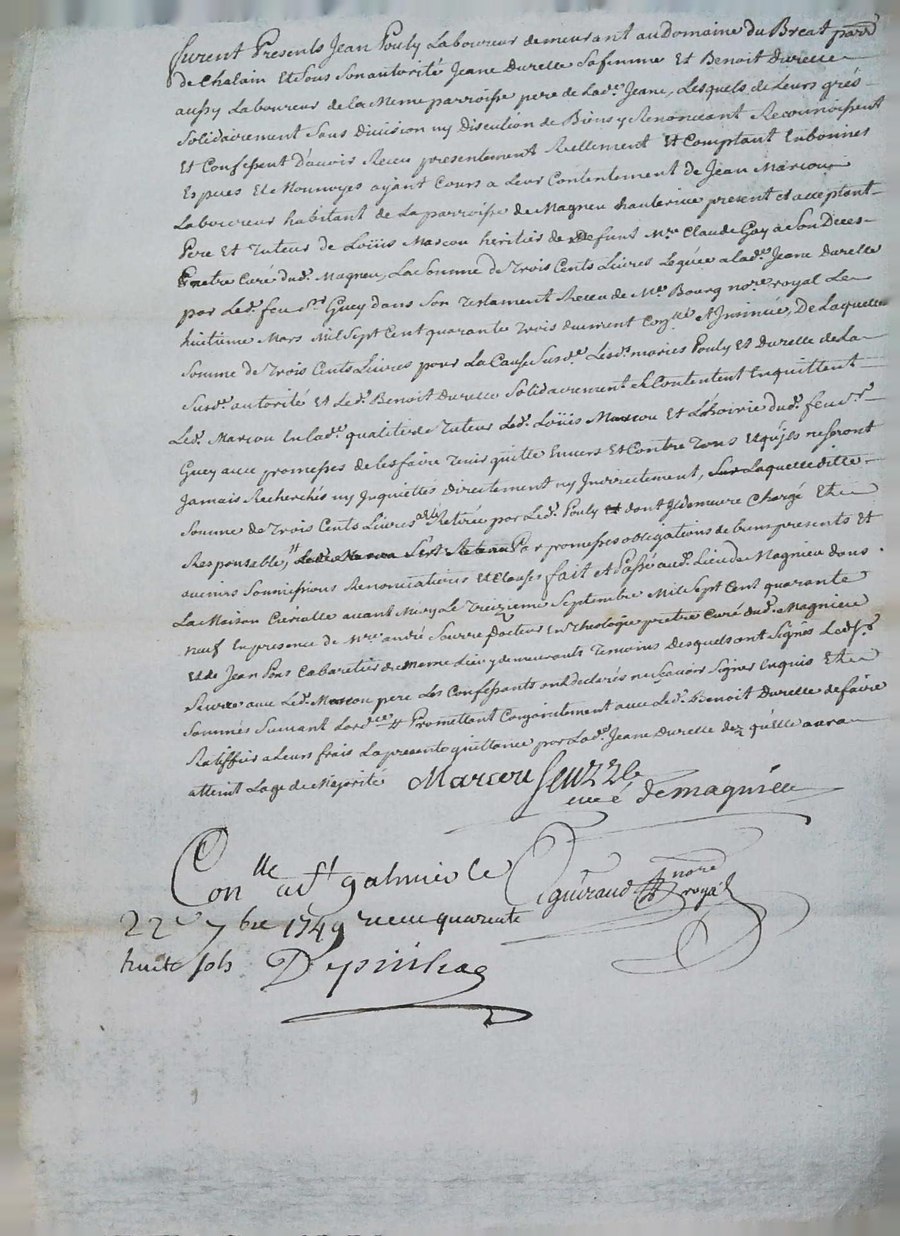 furent Presents Jean Pouly Laboureur demeurant au Domaine du Breat parr^e
de Chalain Et Sous Son autorité Jeane Durelle Sa femme Et Benoit Durelle
aussy Laboureur de la Meme parroisse pere de Lad.^e Jeane, Lesquels de Leurs grés
Solidairement Sans division ny Discution de Biens y Renonceant Reconnoissent
Et Confessent D'avoir Receu presentement Reellement Et Comptant En bonnes
Especes Et Monnoyes ayant Cours a Leur Contentement de Jean Marcou
Laboureur habitant de La parroisse de Magneu hauterive present et acceptant
Pere Et Tuteur de Loüis Marcou héritier de Defunt M.^re Claude Gay a Son Deces
Pretre Curé dud.^t Magneu, La Somme de Trois Cents Livres Leguée a lad.^e Jeane Durelle
par Led.^t feu S.^r Guey dans Son Testament Receu de M.^e Bourg no.^re royal Le
huitieme Mars Mil Sept Cent quarante Trois duement Con.^llé Et Insinué, De Laquelle
Somme de Trois Cents Livres pour La Cause Susd.^e Lesd.^s mariés Pouly Et Durelle de La
Susd.^e autorité Et Led.^t Benoit Durelle Solidairement Se Contentent En quittent
Led.^t Marcou En lad.^e qualité de Tuteur Led.^t Loüis Marcou Et L'hoirie dud.^t feu S.^r
Guey avec promesses de les faire Tenir quitte Envers Et Contre Tous Et qu'ils ne Seront
Jamais Recherchés ny Inquiettés Directement ny Indirectement, Laquelle ditte
Somme de Trois Cents Livres a été Retirée par Led.^t Pouly dont Il demeure Chargé Et
Responsable, Par promesses obligations de biens presents Et
avenirs Soumissions Renonciations Et Clauses fait et Passé aud.^t Lieu de Magnieu dans
La Maison Curialle avant Midy Le Treizieme Septembre Mil Sept Cent quarante
neuf En presence de M.^re andré Docteur En Theologie pretre Curé dud.^t Magnieu
Et de Jean Pons Cabaretier du Meme Lieu y demeurants Temoins Desquels ont Signés Led.^t S.^r
avec Led.^t Marcou pere Les Confessants ont declarés ne Scavoir Signer Enquis Et
Sommés Suivant Lord.^ce Promettant Conjointement avec Led.^t Benoit Durelle de faire
Ratiffier a Leurs frais La presente quittance par Lad.^e Jeane Durelle dez qu'elle aura
atteint Lage de Majorité
Marcou
curé de magnieu
Con^lle a S^t galmier le
guéraud no^re royal
22^e 7bre 1749 receu quarente
huit sols